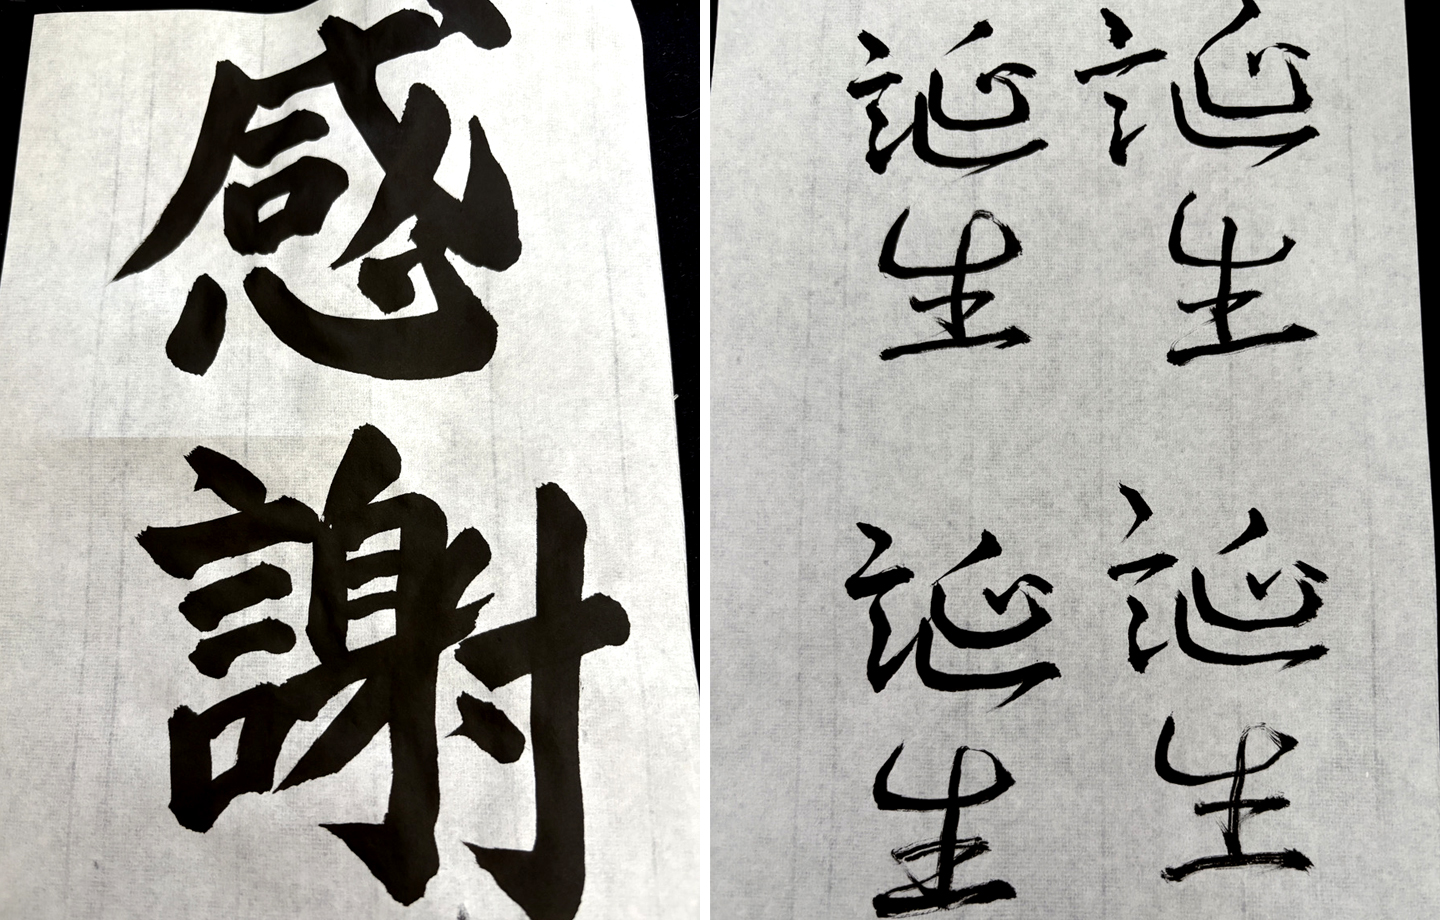 感謝
誕生
誕生
誕生
誕生